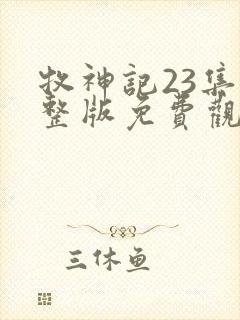 牧神記23集
整版免費觀
三休鱼